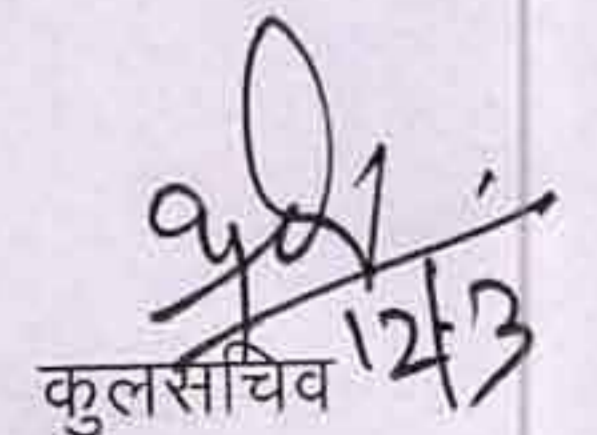 12/3
कुलसचिव